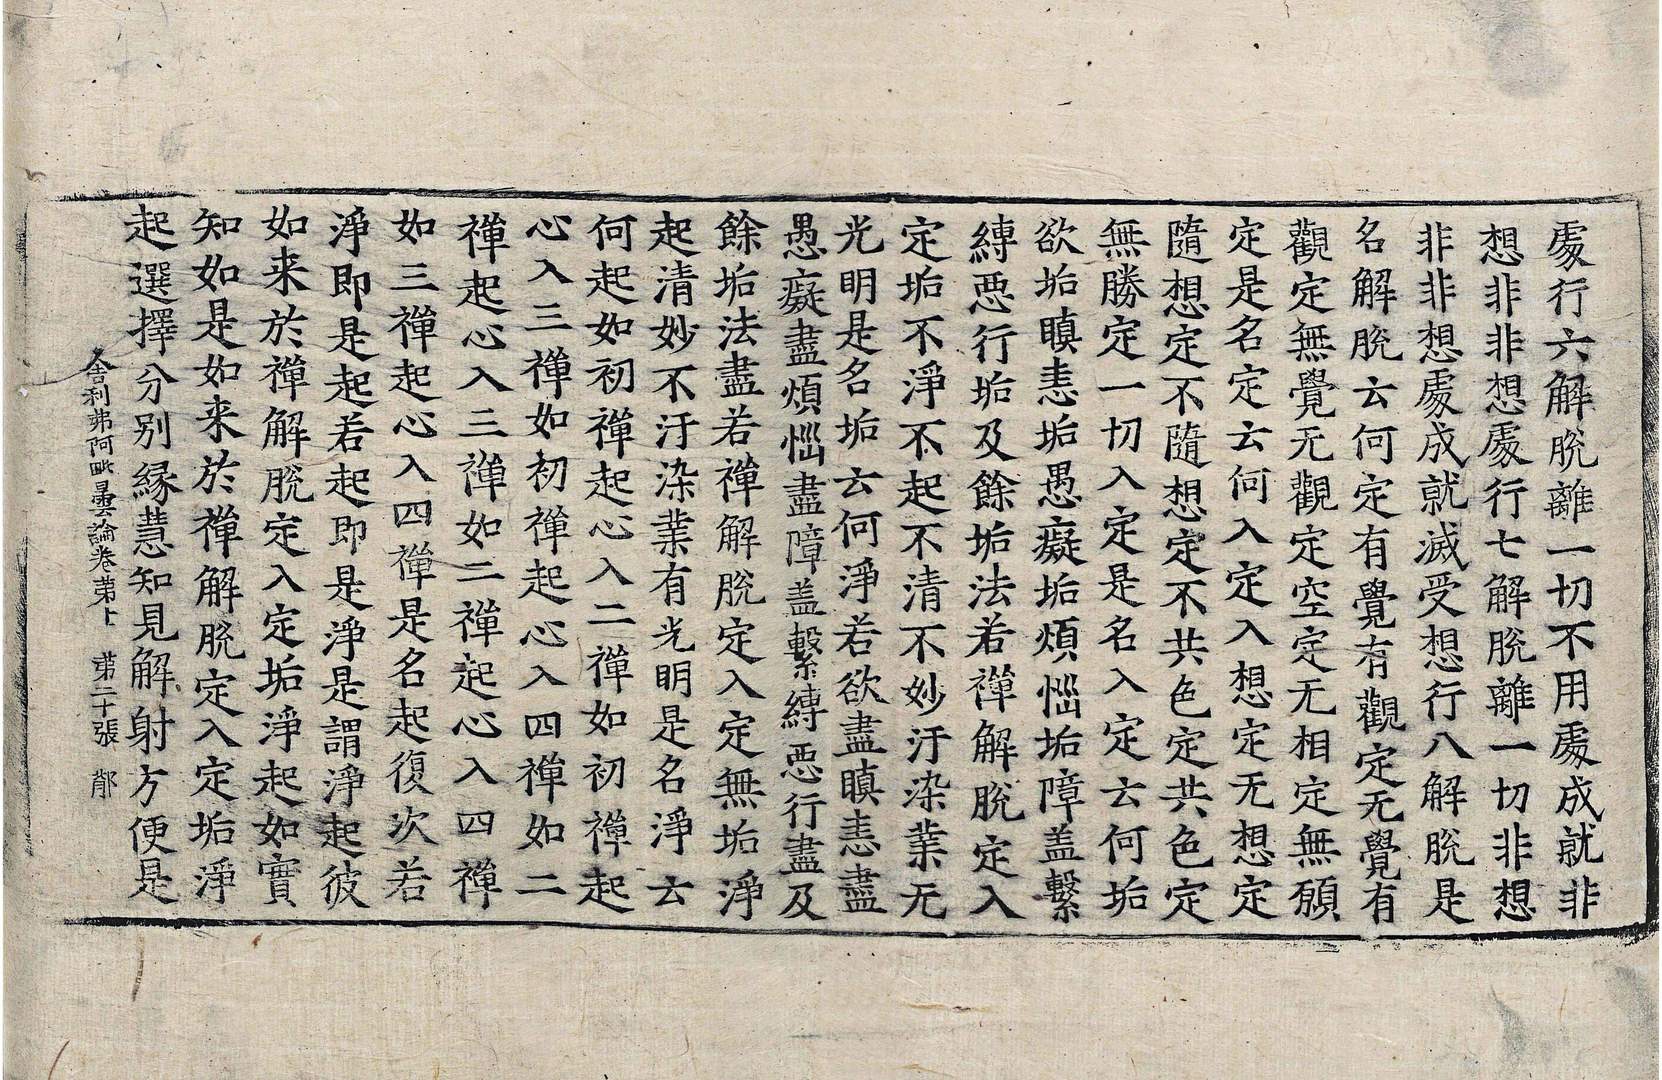 處行六解脫離一切不用處成就非
想非非想處行七解脫離一切非想
非非想處成就滅受想行八解脫是
名解脫云何定有覺有觀定无覺有
觀定無覺无觀定空定无相定無願
定是名定云何入定入想定无想定
隨想定不隨想定不共色定共色定
無勝定一切入定是名入定云何垢
欲垢瞋恚垢愚癡垢煩惱垢障盖繫
縛惡行垢及餘垢法若禪解脫定入
定垢不淨不起不清不妙汙染業无
光明是名垢云何淨若欲盡瞋恚盡
愚癡盡煩惱盡障盖繫縛惡行盡及
餘垢法盡若禪解脫定入定無垢淨
起清妙不汙染業有光明是名淨云
何起如初禪起心入二禪如初禪起
心入三禪如初禪起心入四禪如二
禪起心入三禪如二禪起心入四禪
如三禪起心入四禪是名起復次若
淨即是起若起即是淨是謂淨起彼
如来於禪解脫定入定垢淨起如實
知如是如来於禪解脫定入定垢淨
起選擇分別緣慧知見解射方便是
舍利弗阿毗曇論卷苐七 苐二十張 郁